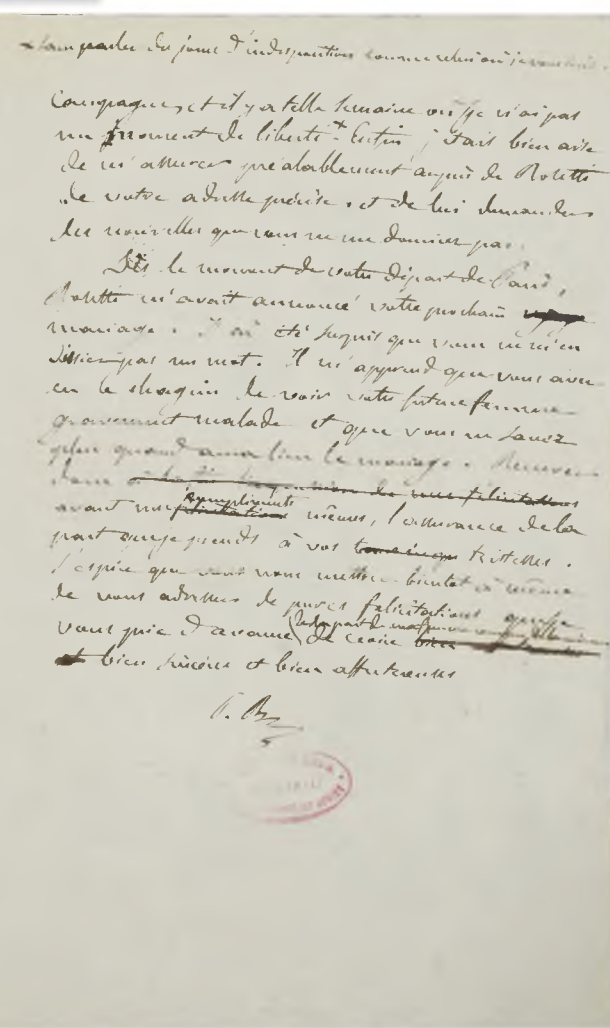 + sans parler des jours d'indisposition comme celui où je vous écris.
campagne, et il y a telle semaine où je n'ai pas
un moment de liberté + Enfin j'étais bien aise
de m'assurer préalablement auprès de Rosetti
de votre adresse précise, et de lui demander
les nouvelles que vous ne me donniez pas.
Dès le moment de votre départ de Paris,
Rosetti m'avait annoncé votre prochain
mariage. J'ai été surpris que vous ne m'en
dissiez pas un mot. Il m'apprend que vous avez
eu le chagrin de voir votre future femme
gravement malade et que vous ne savez
plus quand aura lieu le mariage. Recevez
donc
de nos félicitations
compliments
avant nos félicitations mêmes, l'assurance de la
part que je prends à vos tristesses.
J'espère que vous nous mettrez bientôt à même
de vous adresser de pures félicitations que je
vous prie d'avance de la part de ma femme
de croire bien
et bien sincères et bien affectueuses